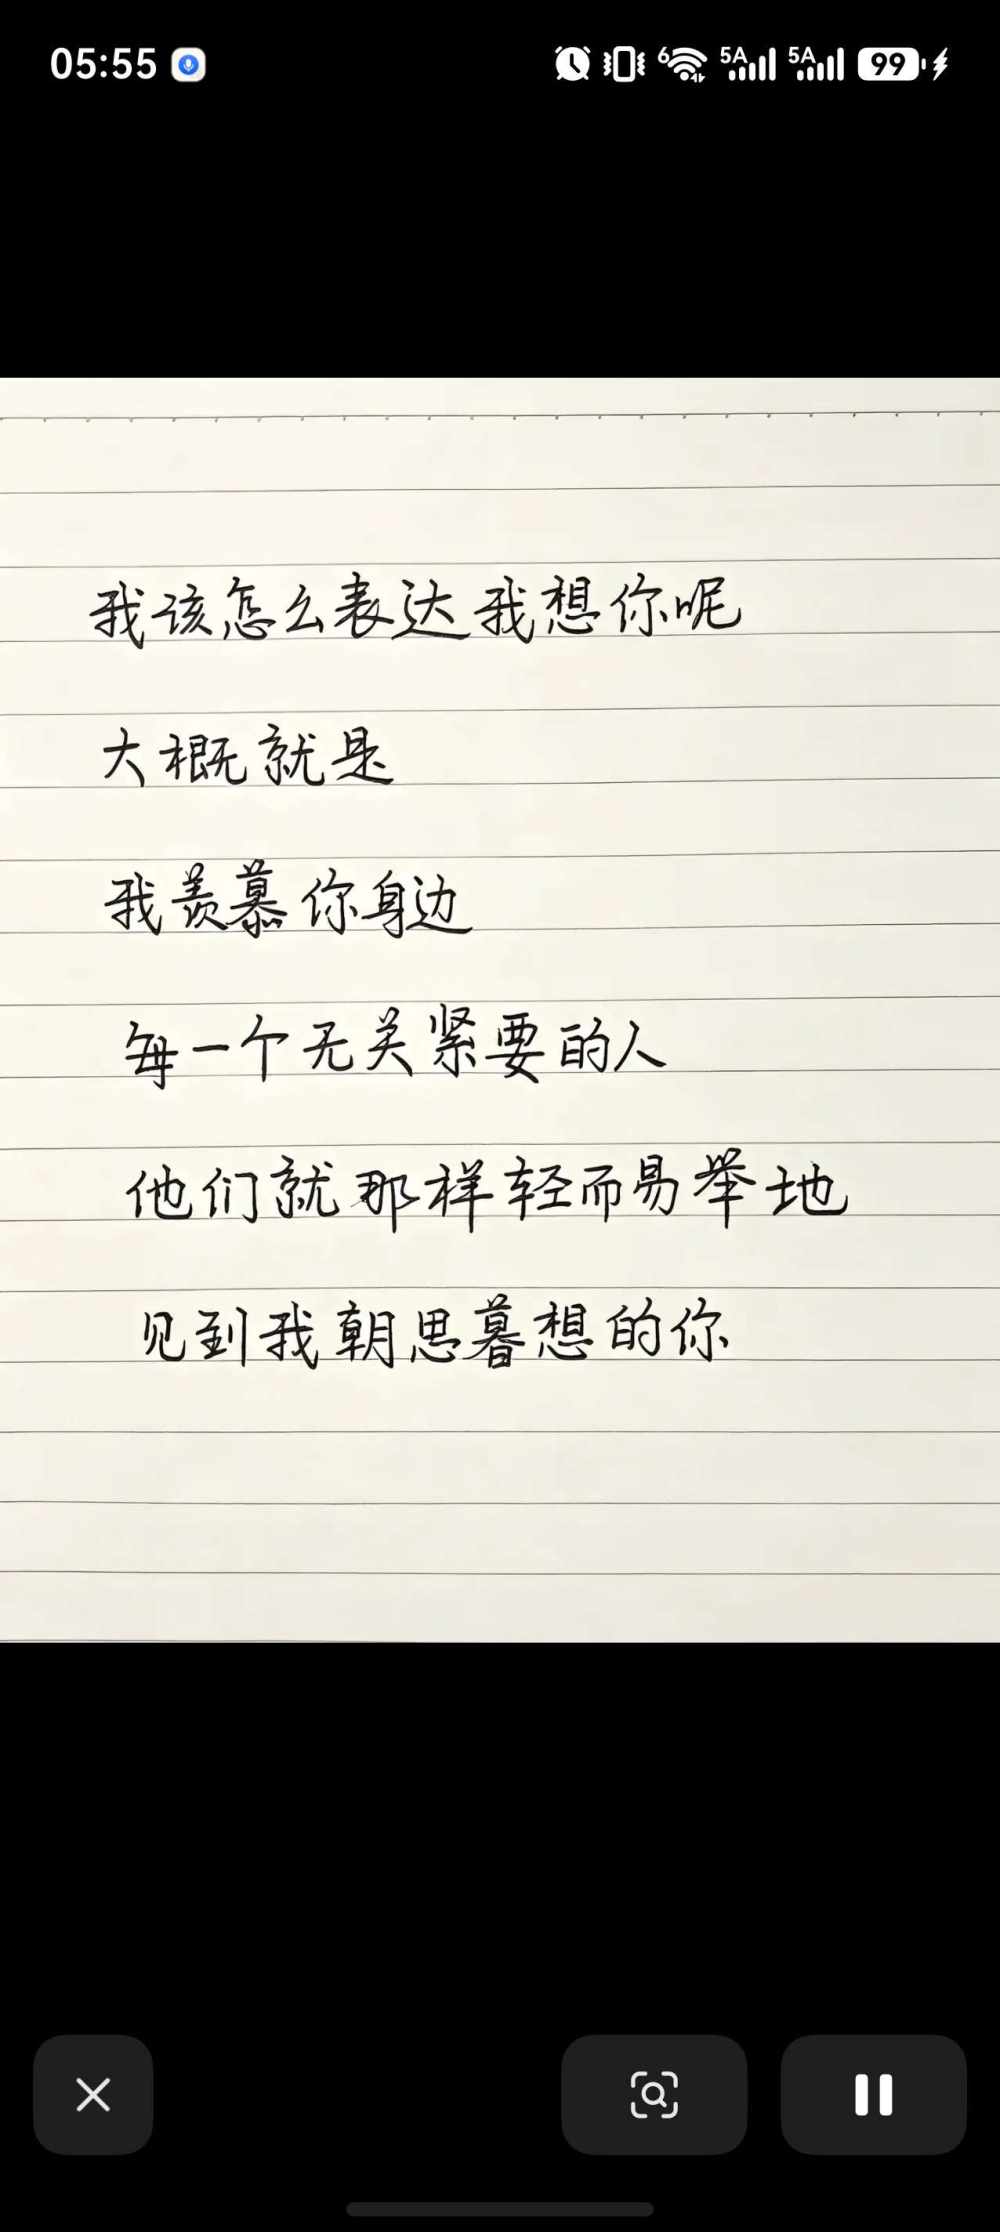 05:55
6 5A 5A 99
我该怎么表达我想你呢
大概就是
我羡慕你身边
每一个无关紧要的人
他们就那样轻而易举地
见到我朝思暮想的你